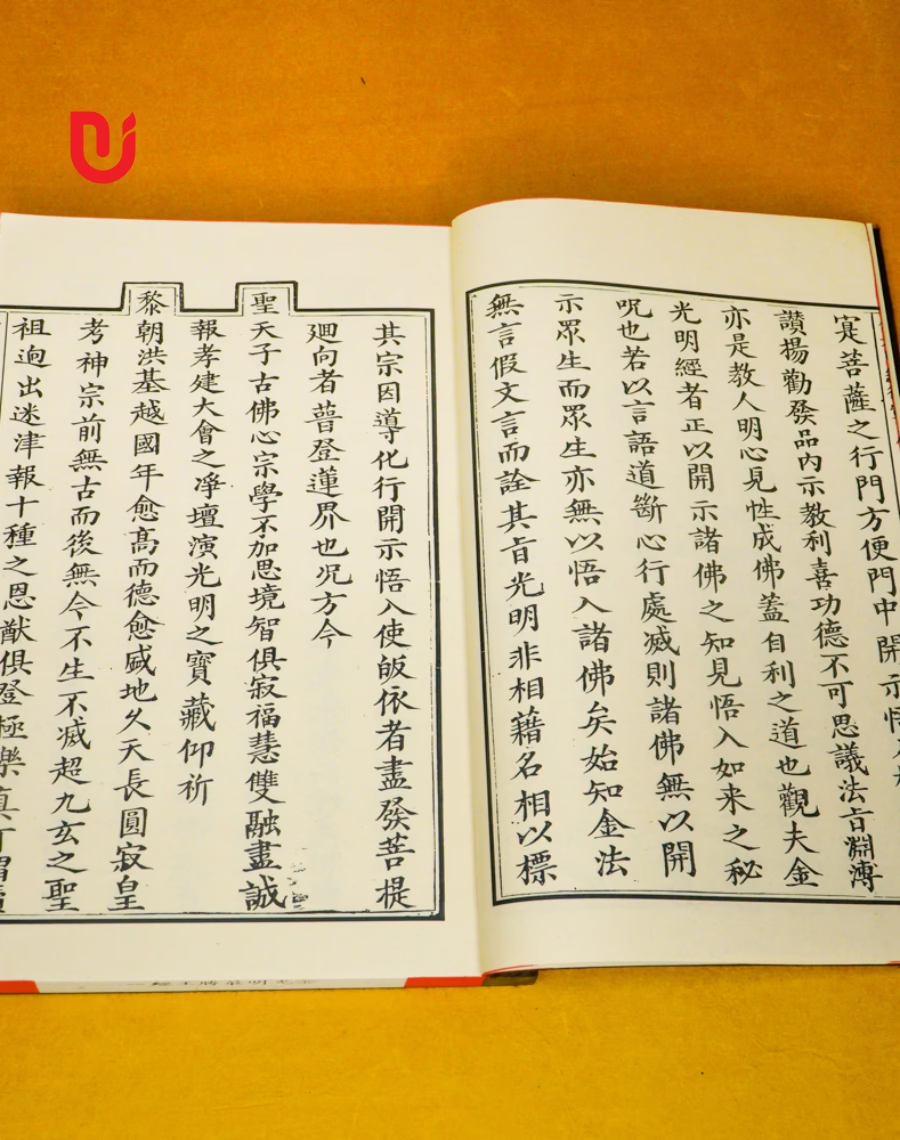 寔菩薩之行門方便門中開示悟入
讚揚勸發品内示教利喜功德不可思議法旨淵溥
亦是教人明心見性成佛蓋自利之道也觀夫金
光明經者正以開示諸佛之知見悟入如来之秘
呪也若以言語道斷心行處滅則諸佛無以開
示眾生而眾生亦無以悟入諸佛矣始知金法
無言假文言而詮其旨光明非相藉名相以標
其宗因導化行開示悟入使皈依者盡發菩提
廻向者普登蓮界也况方今
聖天子古佛心宗學不加思境智俱寂福慧雙融盡誠
報孝建大會之凈壇演光明之寶藏仰祈
黎朝洪基越國年愈髙而德愈盛地久天長圓寂皇
考神宗前無古而後無今不生不滅超九玄之聖
祖逈出迷津報十種之恩猷俱登極樂真可謂